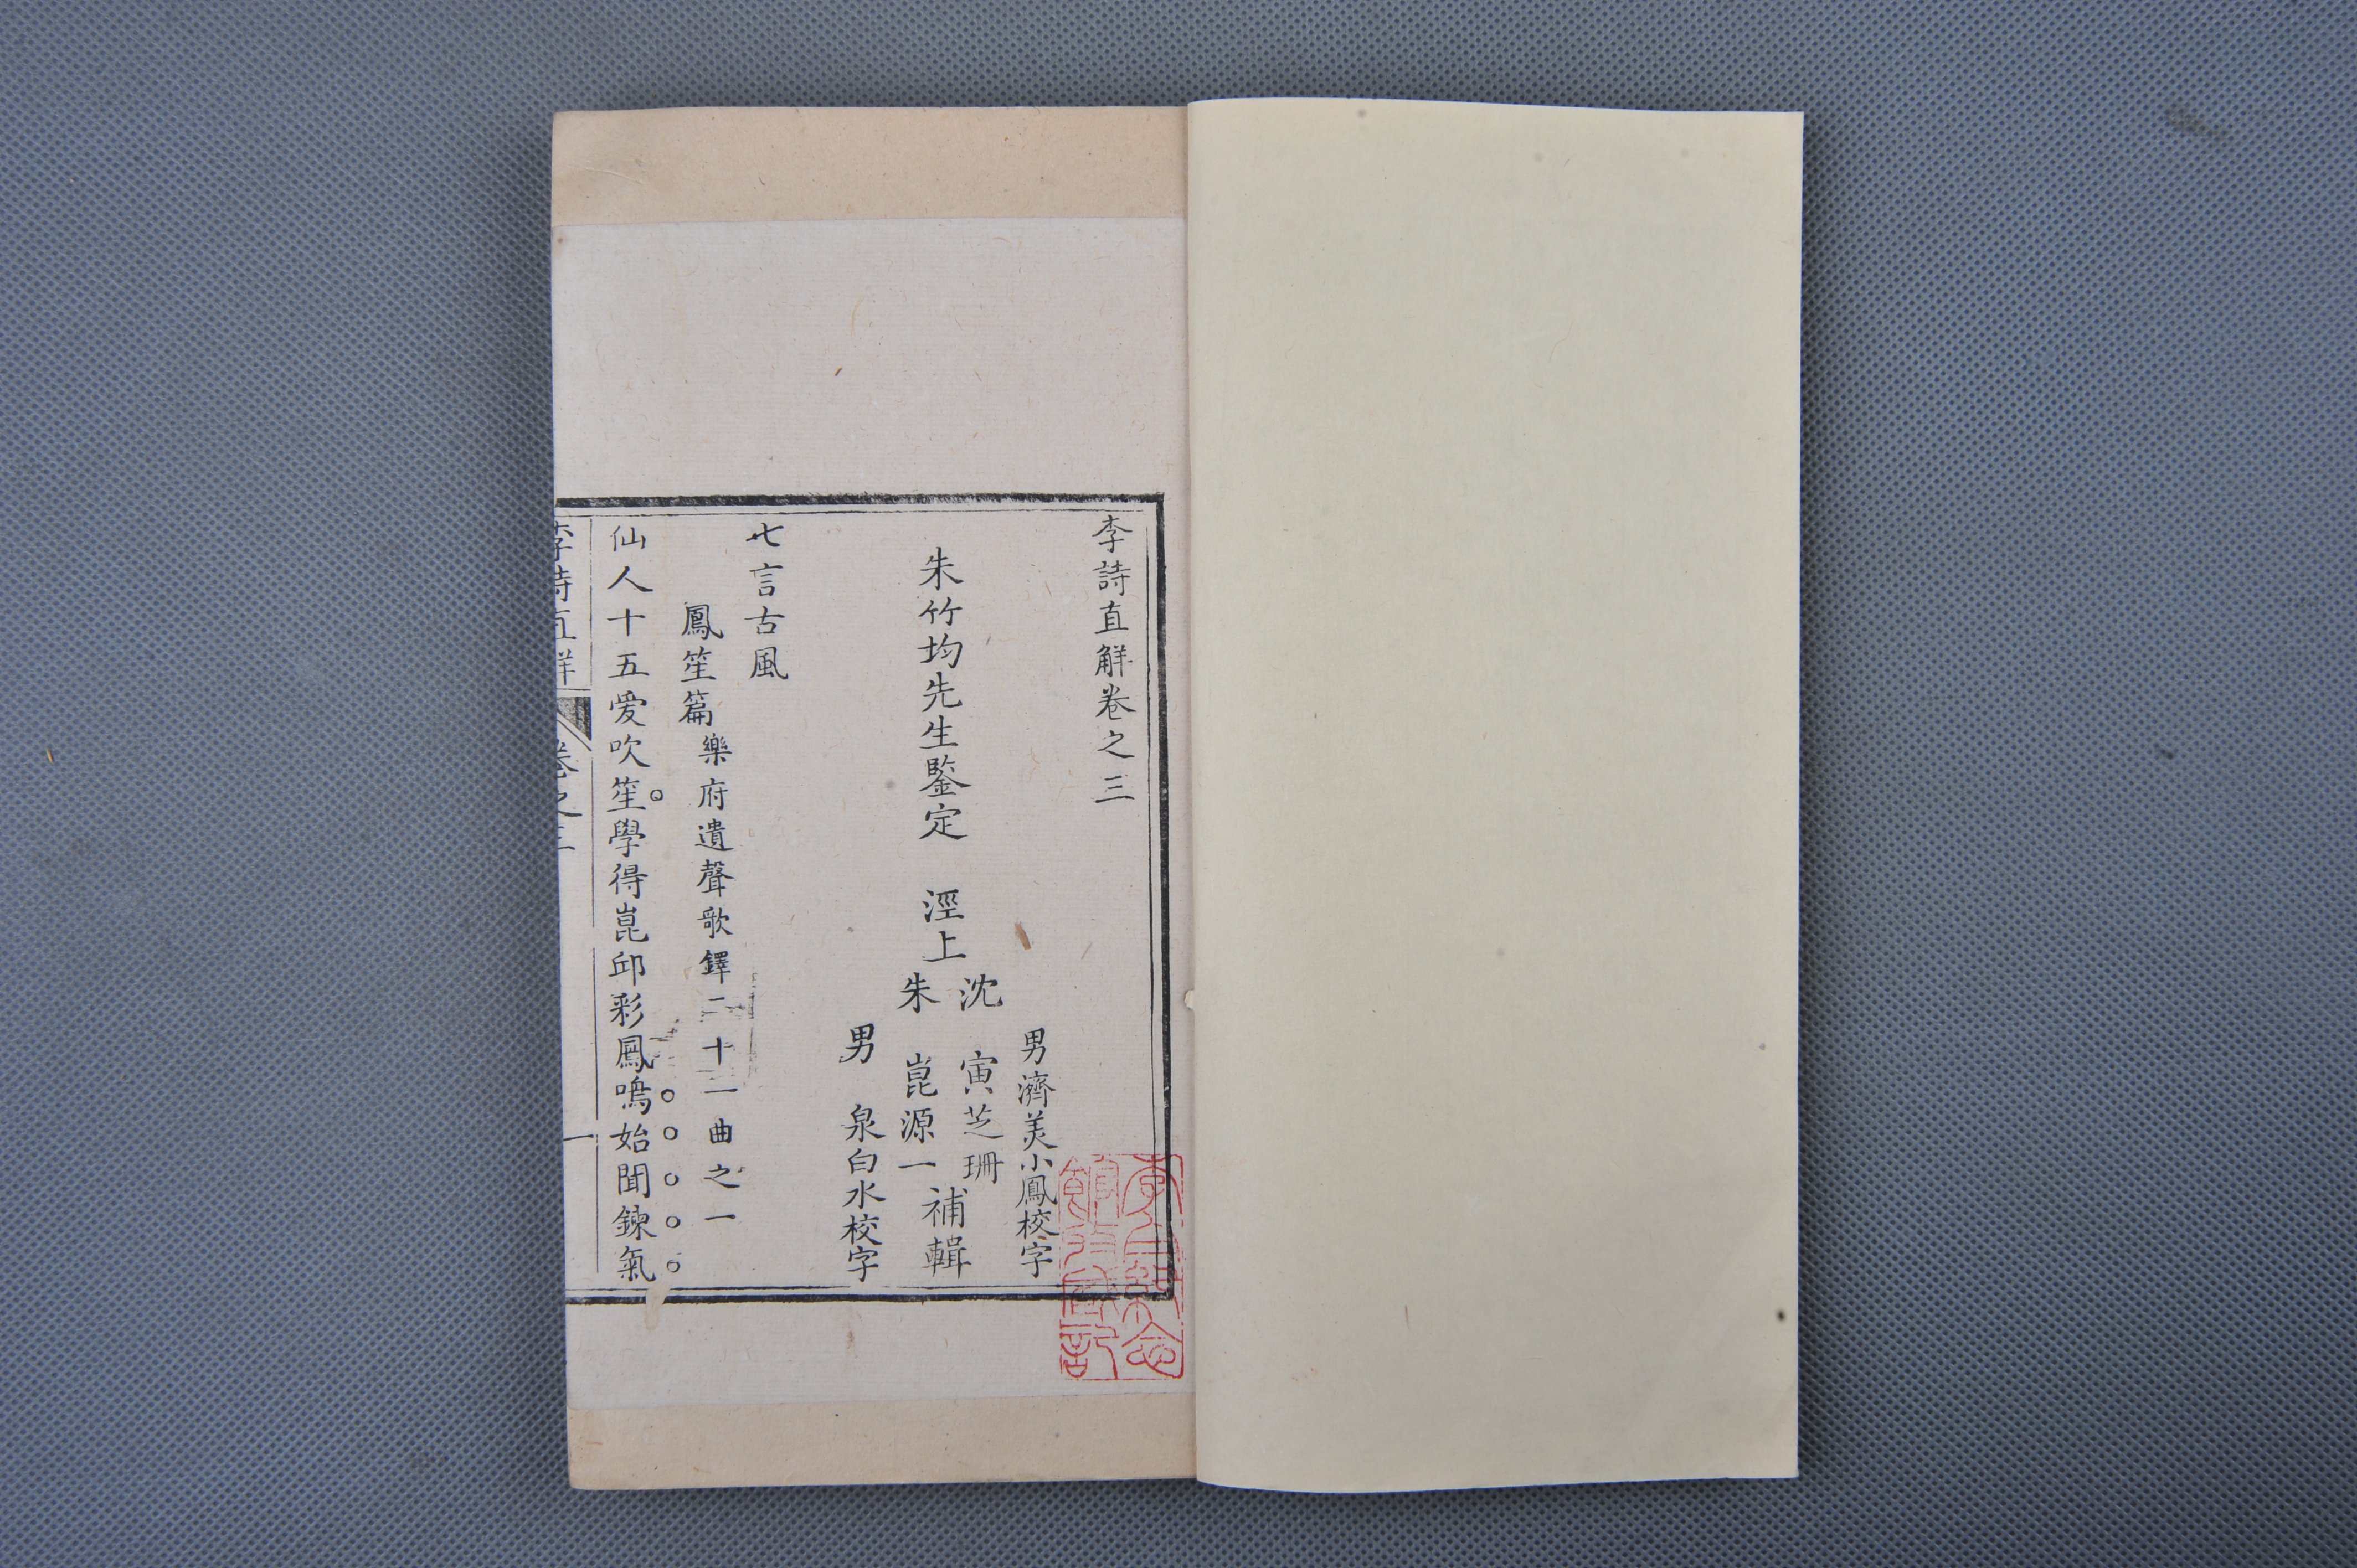 李詩直解卷之三
男濟美小鳳校字
朱竹均先生鑒定　涇上
沈　寅芝珊
朱　崑源一
補輯
男　泉白水校字
七言古風
鳳笙篇樂府遺聲歌鐸二十一曲之一
仙人十五爱吹笙學得崑邱彩鳳鳴始聞鍊氣
李詩直解　卷之三　一
李白紀念館珍藏圖記